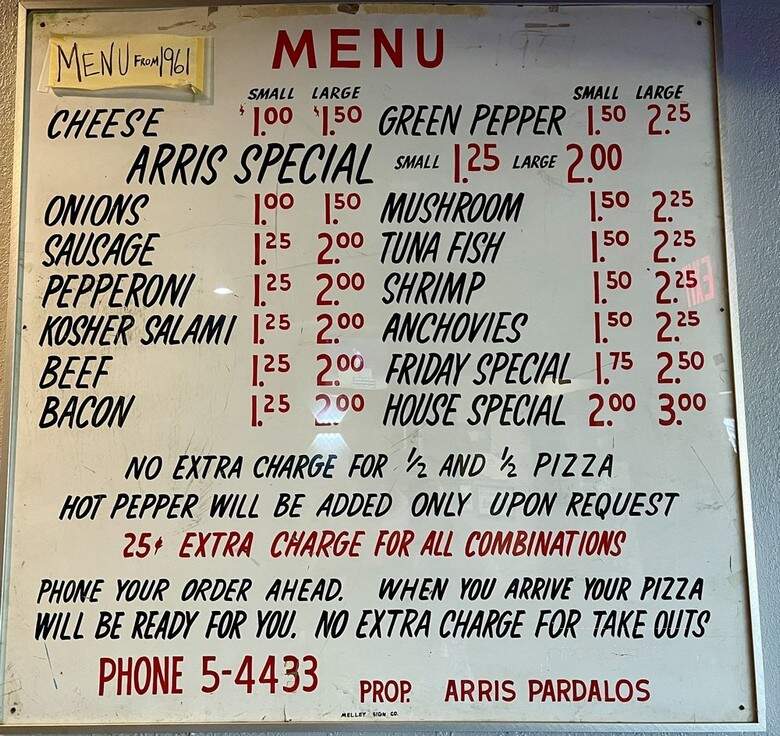 MENU FROM 1961
MENU
SMALL LARGE SMALL LARGE
CHEESE $1.00 $1.50 GREEN PEPPER 1.50 2.25
ARRIS SPECIAL SMALL 1.25 LARGE 2.00
ONIONS 1.00 1.50 MUSHROOM 1.50 2.25
SAUSAGE 1.25 2.00 TUNA FISH 1.50 2.25
PEPPERONI 1.25 2.00 SHRIMP 1.50 2.25
KOSHER SALAMI 1.25 2.00 ANCHOVIES 1.50 2.25
BEEF 1.25 2.00 FRIDAY SPECIAL 1.75 2.50
BACON 1.25 2.00 HOUSE SPECIAL 2.00 3.00
NO EXTRA CHARGE FOR ½ AND ½ PIZZA
HOT PEPPER WILL BE ADDED ONLY UPON REQUEST
25¢ EXTRA CHARGE FOR ALL COMBINATIONS
PHONE YOUR ORDER AHEAD. WHEN YOU ARRIVE YOUR PIZZA
WILL BE READY FOR YOU. NO EXTRA CHARGE FOR TAKE OUTS
PHONE 5-4433 PROP. ARRIS PARDALOS
MELLEY SIGN CO.